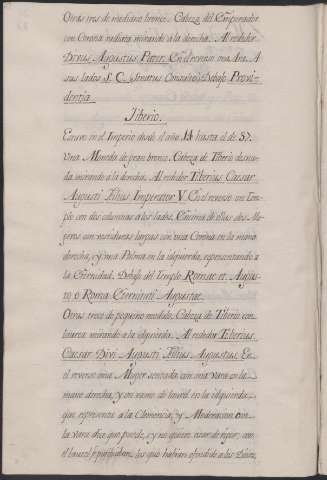 Otras tres de mediano bronce. Cabeza del Emperador
con Corona radiata mirando a la derecha. Al rededor
Divus Augustus Pater. En el reverso una Ara. A
sus lados S. C. Senatus Consulto. Debajo Provi-
dentia
Tiberio.
Estuvo en el Imperio desde el año 14 hasta el de 37.
Una Moneda de gran bronce. Cabeza de Tiberio desnu-
da mirando a la derecha. Al rededor Tiberius Caesar
Augusti Filius Imperator V. En el reverso un Tem-
plo con dos columnas a los lados. Encima de ellas dos Mu-
geres con vestiduras largas con una Corona en la mano
derecha, y una Palma en la izquierda, representando a
la Eternidad. Debajo del Templo Romae et Augus-
to o Roma Eternitati Augustae.
Otras trece de pequeño modulo. Cabeza de Tiberio con
laurea mirando a la izquierda. Al rededor Tiberius
Caesar Divi Augusti Filius Augustus. En
el reverso una Muger sentada, con una vara en la
mano derecha, y un ramo de laurel en la izquierda,
que representa a la Clemencia, y Moderacion con
la vara dice que puede, y no quiere usar de rigor, con
el laurel se purificaban los que habian ofendido a los